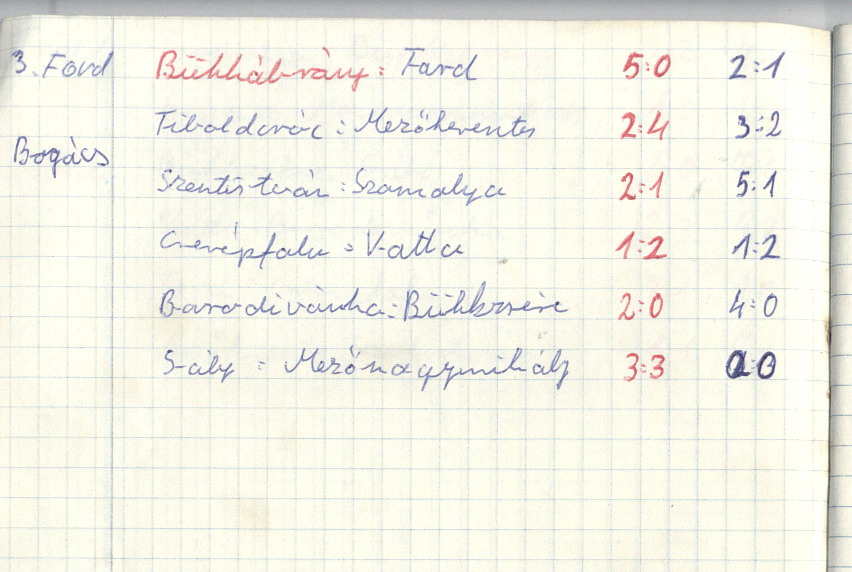 3. Ford Bükkábrány : Tard 5:0 2:1
Tiboldaróc : Mezőkeresztes 2:4 3:2
Bogács
Szentistván : Szomolya 2:1 5:1
Cserépfalu = Vatta 1:2 1:2
Borsodivánka : Bükkzsérc 2:0 4:0
Sály = Mezőnagymihály 3:3